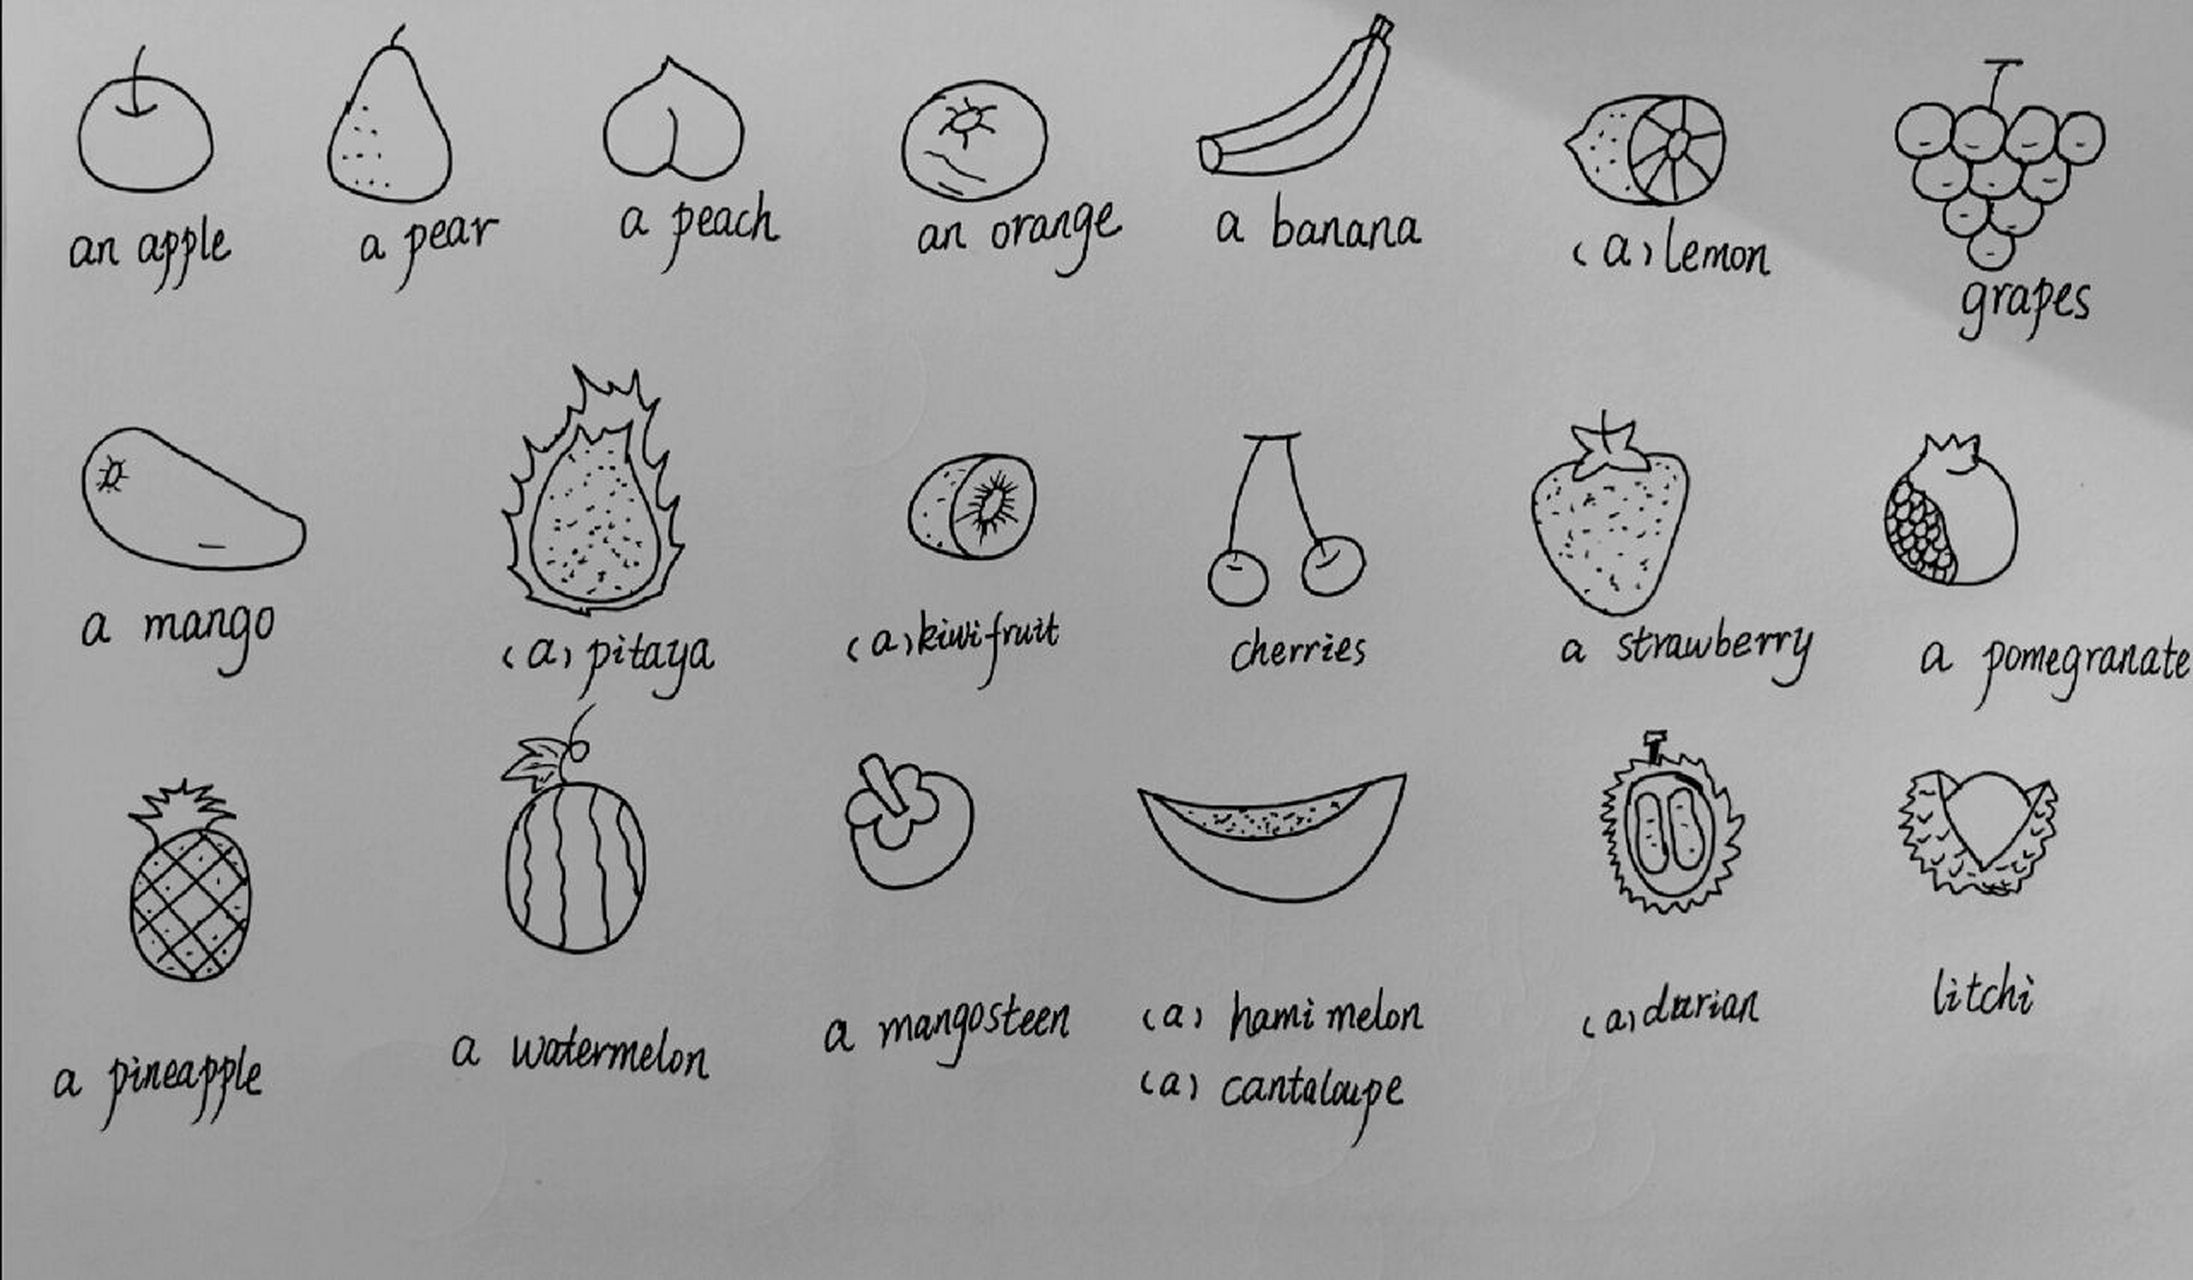 an apple a pear a peach an orange a banana (a) lemon grapes
a mango (a) pitaya (a) kiwifruit cherries a strawberry a pomegranate
a pineapple a watermelon a mangosteen (a) hami melon (a) durian litchi
(a) cantaloupe